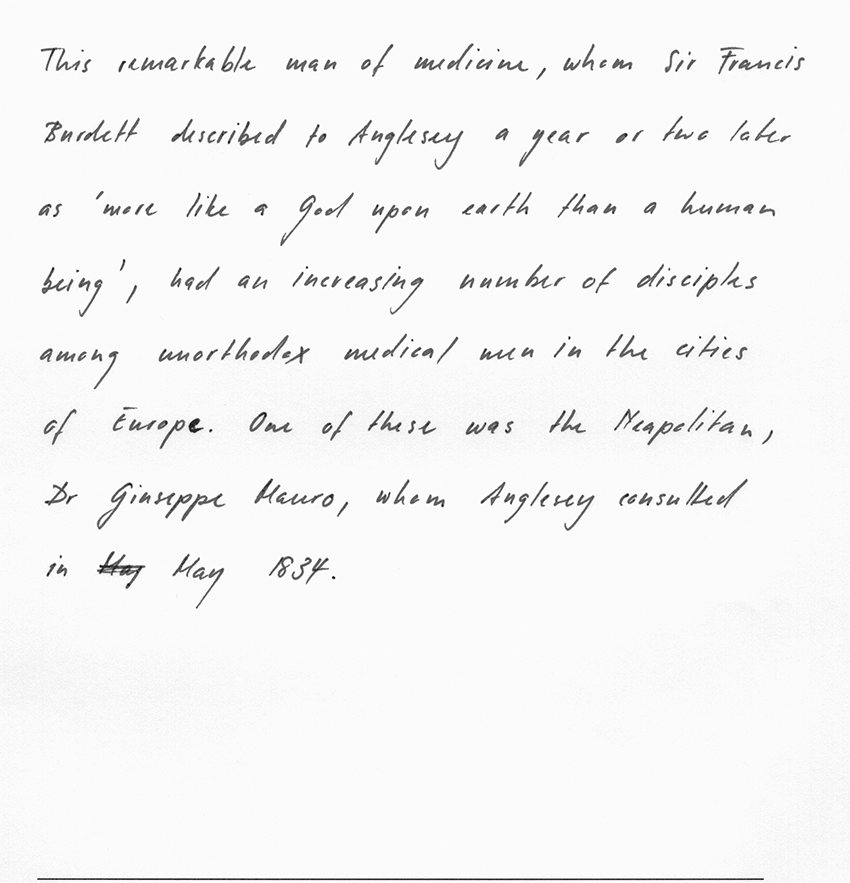 This remarkable man of medicine, whom Sir Francis
Burdett described to Anglesey a year or two later
as 'more like a God upon earth than a human
being', had an increasing number of disciples
among unorthodox medical men in the cities
of Europe. One of these was the Neapolitan,
Dr Giuseppe Mauro, whom Anglesey consulted
in May May 1834.